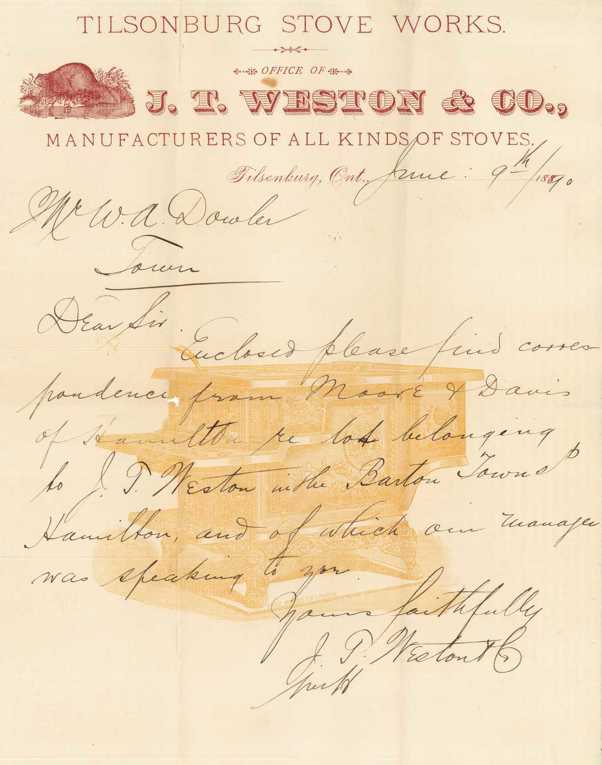 TILSONBURG STOVE WORKS.
OFFICE OF
J. T. WESTON & CO.,
MANUFACTURERS OF ALL KINDS OF STOVES.
Tilsonburg, Ont., June 9th / 1890
Mr W. A. Dowler
Town
Dear Sir
Enclosed please find corres
pondence from Moore & Davis
of Hamilton re lot belonging
to J. T. Weston in the Barton Townsp
Hamilton, and of which our manager
was speaking to you
Yours faithfully
J. T. Weston & Co